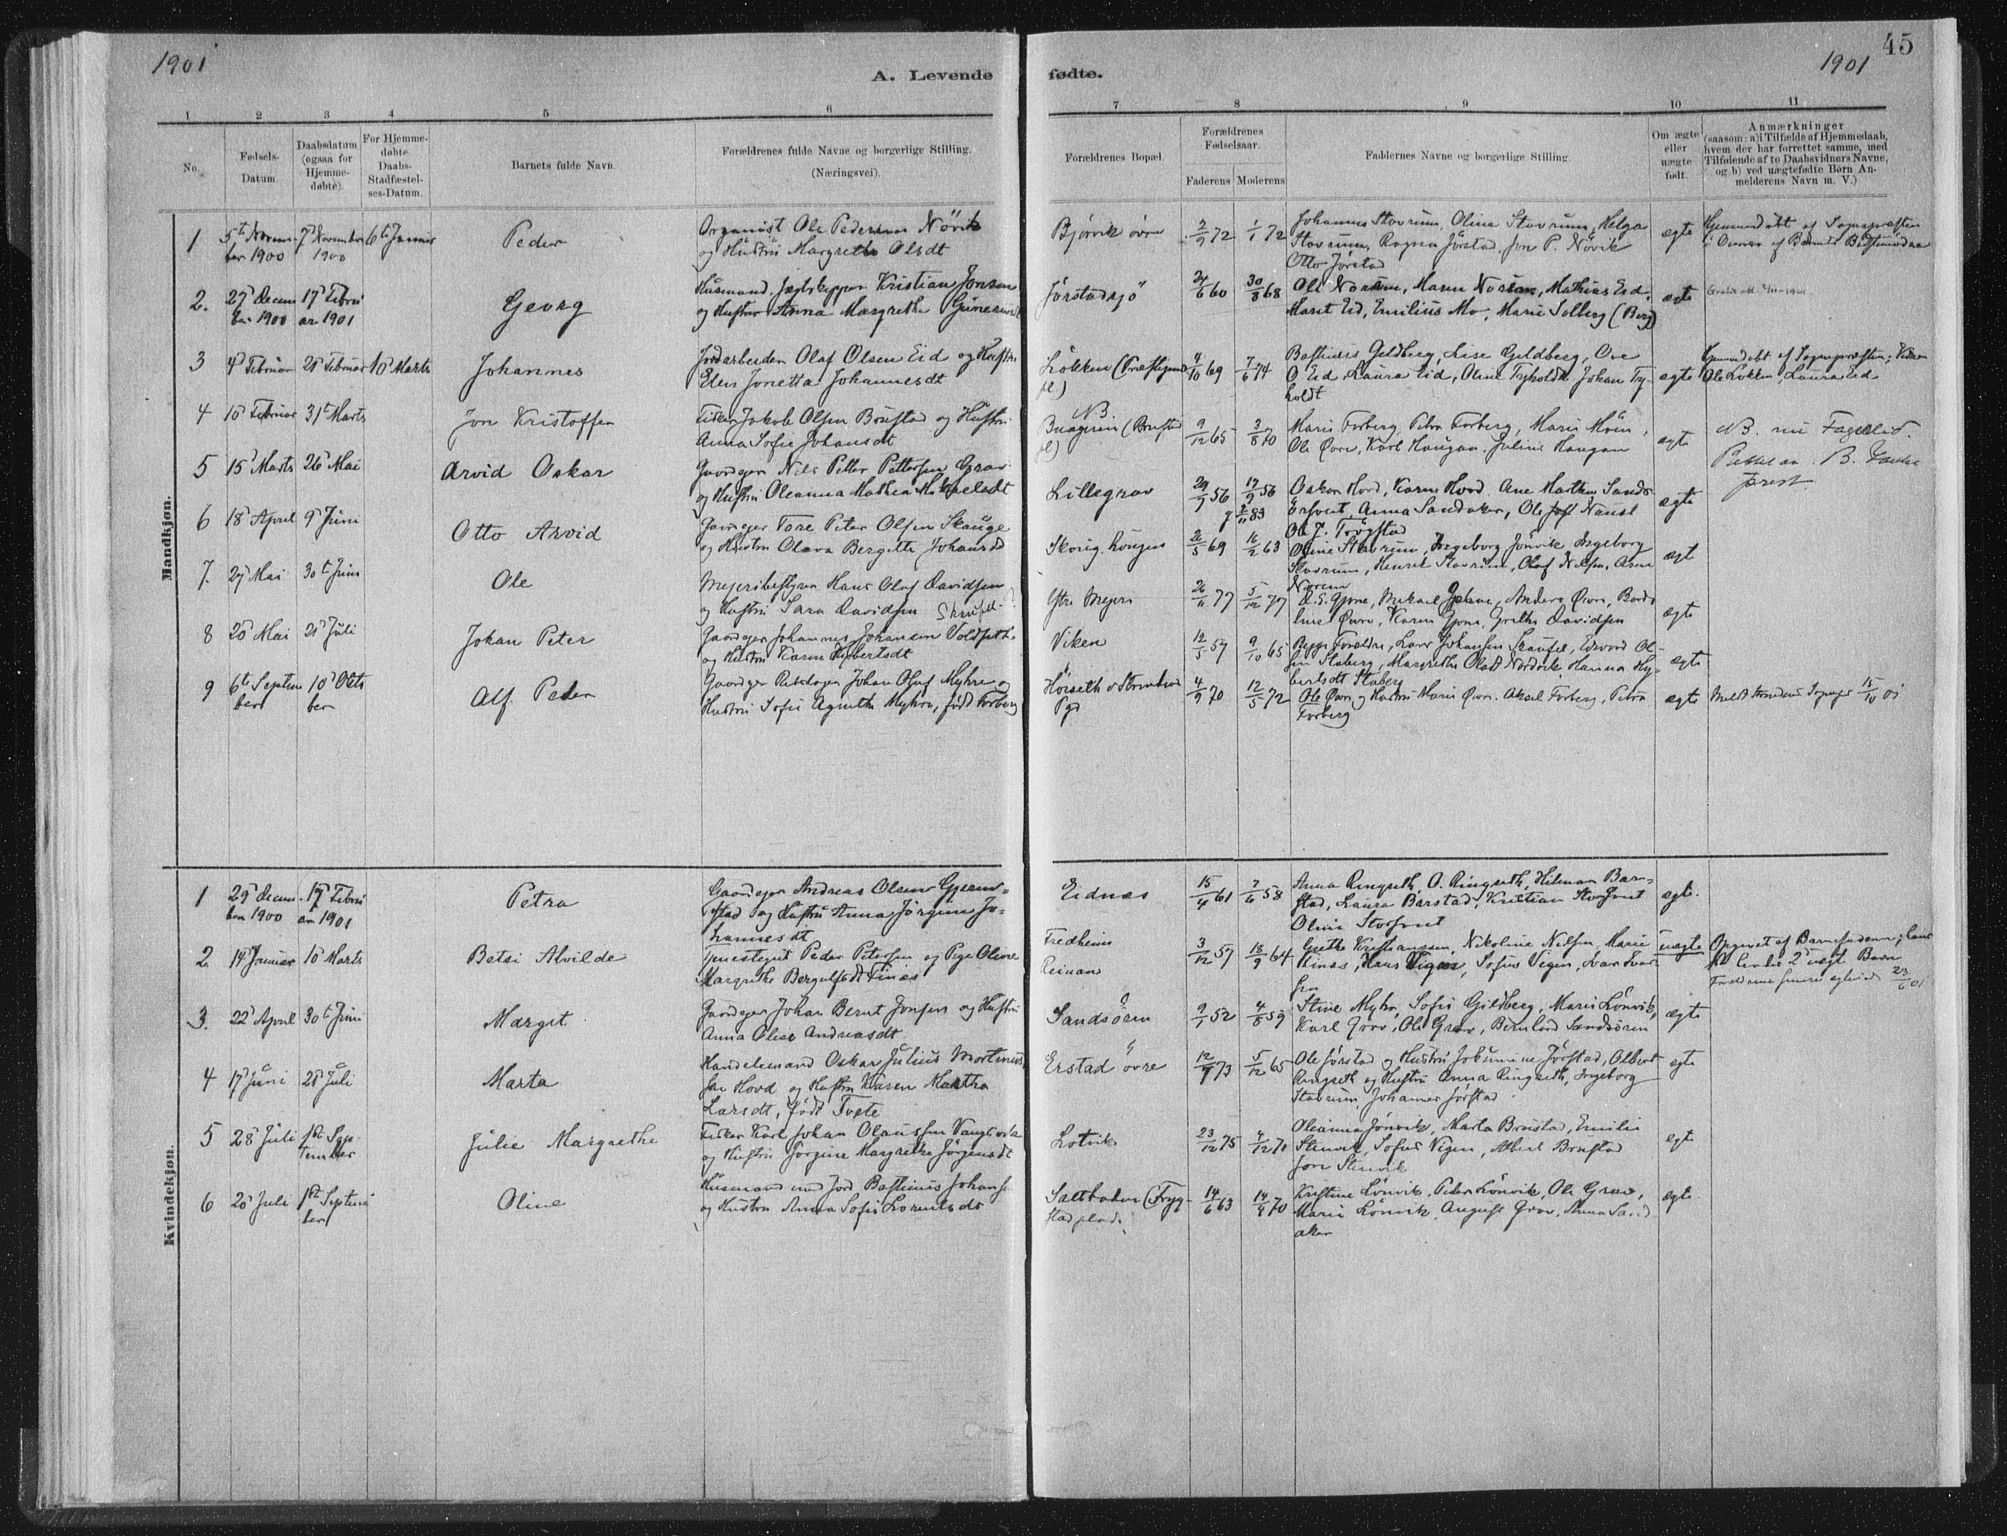 1901
A. Levende fødte.
1901
45
1 2 3 4 5 6 7 8 9 10 11
No.
Fødsels-Datum.
Daabsdatum (ogsaa for Hjemme-døbte).
For Hjemme-døbte Daabs-Stadfæstel-ses-Datum.
Barnets fulde Navn.
Forældrenes fulde Navne og borgerlige Stilling. (Næringsvei).
Forældrenes Bopæl.
Forældrenes Fødselsaar.
Faderens Moderens
Faddernes Navne og borgerlige Stilling.
Om ægte eller uægte født.
Anmærkninger (saasom: a) i Tilfælde af Hjemmedaab, hvem der har forrettet samme, med Tilføiende af to Daabsvidners Navne, og b) ved uægtefødte Børn An-melderens Navn m. V.)
Mandkjøn.
1 5te Novem-ber 1900 7 November 1900 6te Januar Peder
Organist Ole Pedersen Növik
og Hustru Margrethe Olsdt
Bjørvik övre 2/9 72 1/1 72
Johannes Stavrum, Oline Stavrum, Helga
Stavrum, Ragna Jörstad, Jon P. Növik
Otto Jörstad
ægte
Hjemmedøbt af Sognepræsten
2. 27 Decem ber 1900 17 Febru ar 1901 Georg
Husmand, Jægtskipper Kristian Jensen
og Hustru Anna Margrethe
Jörstadsjö 24/6 60 30/8 68
Ole Norum, Maren Norum, Mathias Eid,
Maret Eid, Emilius Mo, Marie Solberg (Berg)
ægte
3 4 Februar 21 Februar 10 Marts Johannes
Jordarbeider Olaf Olsen Eid og Hustru
Elen Jonetta Johannesdt
Løkken 4/10 69 7/6 74
Bastinus Geldberg, Lise Geldberg, Ove
O Eid, Laura Eid, Oline Tryholdt, Johan Try-
holdt
ægte
Hjemmedøbt af Sognepræsten; Vidner
Ole Løkken, Laura Eid
4 10 Februar 31te Marts Jon Kristoffer
Fisker Jakob Olsen Brustad og Hustru
Anna Sofie Johansdt
NB
9/12 65 3/8 70
Marie Forberg, Petra Forberg, Marie Moen,
Ole Øvre, Karl Haugan, Julius Haugan
ægte
NB. nu Fagerlid.
5 15 Marts 26 Mai Arvid Oskar
Gaardejer Nils Petter Pettersen Grav
og Hustru Oleanna Mathea Mikaelsdt
Lillegrav 29/1 56 17/9 56
Oskar Hovd, Karen Hovd, Ane Marthe Sands-
Anna Sandaker, Ole
ægte
6 18 April 9 Juni Otto Arvid
Gaardejer Tore Peter Olsen Skauge
og Hustru Olava Bergitte Johansdt
69 16/2 63
Oline Stavrum, Ingeborg Jönvik, Ingeborg
Stavrum, Henrik Stavrum, Olaf Nilsen, Arne
Norem
ægte
7. 27 Mai 30te Juni Ole
Meieribestyrer Hans Olaf Davidsen
og Hustru Sara Davidsen
Ytre Mejeri 77 5/12 77
Mikael Gjone, Anders Øvre,
Øvre, Karen Gjone, Grethe Davidsen
ægte
8 20 Mai 21 Juli Johan Peter
Gaardejer Johannes Johansen Voldseth
og Hustru Karen
Viken 12/5 57 9/10 65
Begge Forældre, Lars Johansen Skaufel, Edvard Ol-
sen Staberg, Margrethe Olsdt Nordvik, Hanna Hy-
bertsdt Staberg
ægte
9 6te Septem ber 10 Okto ber Alf Peder
Gaardejer Johan Olaf Myhre og
Hustru Sofie Agnethe Myhre, født Forberg
4/9 70 12/5 72
Ole Øvre og Hustru Marie Øvre, Aksel Forberg, Petra
Forberg
ægte
15/10 01
Kvindekjøn.
1 29 Decem ber 1900 17 Febru ar 1901 Petra
Gaardejer Andreas Olsen Gjerm-
stad og Hustru Anna Jørgine Jo-
hannesdt
Eidnæs 15/4 61 7/6 58
Anna Ringseth, O. Ringseth, Hilmar Bar-
stad, Laura Barstad, Kristian
Oline
ægte.
2. 14 Januar 10 Marts Betsi Alvilde
Tjenestegut Peder Petersen og Pige Oline
Margrethe Bergulfsdt Finæs
Fredheim
Reinaa 3/12 57 18/9 64
Grethe Kristianssen, Nikoline Nilsen, Marie
Hans Vigen, Sofus Vigen, Ivar Ivar-
sen
uægte
Opgivet af Barnefaderen; hans
2det uægte Barn
23/6 01
3. 22 April 30te Juni Margit
Gaardejer Johan Bernt Jonsen og Hustru
Anna Olise Andreasdt
Sandsören 9/1 52 4/8 59
Stine Myhr, Sofie Gildberg, Marie Lönvik,
Karl Grav, Ole Grav, Bernhard Sandsören
ægte
4 17 Juni 21 Juli Marta
Handelsmand Oskar Julius Martinus
sen Hovd og Hustru Karen Martha
Larsdt, født Tvete
Erstad övre 12/1 73 5/12 65
Ole Jørstad og Hustru Johannine Jørstad, Albert
Ringseth og Hustru Anna Ringseth, Ingeborg
Stavrum, Johannes Jørstad
egte
5 28 Juli 1ste Sep tember Julie Margrethe
Fisker Karl Johan Olaussen
og Hustru Jørgine Margrethe Jørgensdt
Lotvik 23/12 75 4/12 70
Oleanna Jönvik, Marta Brustad, Emilie
Stenvik, Sofus Vigen, Albert Brustad
Jon Stenvik
egte
6 20 Juli 1ste Septem ber Oline
Husmand med Jord Bastinus Johans
og Hustru Anna Sofie Lorentsdt
Saltboden (Tryg-
stad plads) 14/6 63 14/4 70
Kristine Lönvik, Peter Lönvik, Ole Grav,
Marie Lönvik, August Grav, Anna Sand
aker
ægte